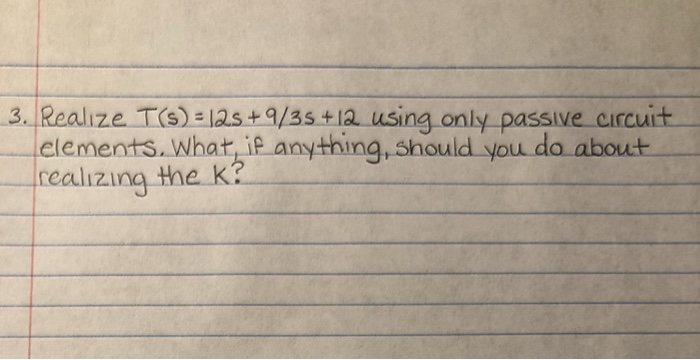 3. Realize T(s) = 12s + 9/3s + 12 using only passive circuit
elements. What, if anything, should you do about
realizing the K?